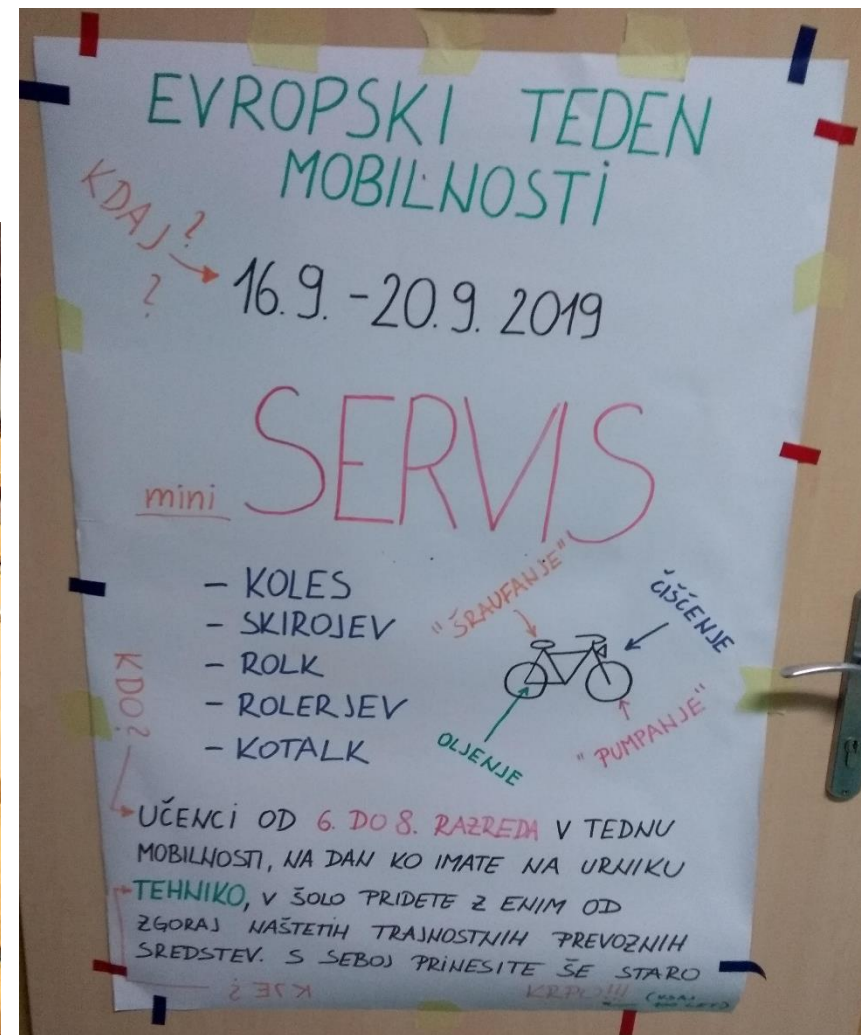 EVROPSKI TEDEN
MOBILNOSTI
KDAJ?
?
16.9. - 20.9. 2019
mini SERVIS
- KOLES
- SKIROJEV
- ROLK
- ROLERJEV
- KOTALK
"ŠRAUFANJE"
ČIŠČENJE
OLJENJE
"PUMPANJE"
KDO?
UČENCI OD 6. DO 8. RAZREDA V TEDNU
MOBILNOSTI, NA DAN KO IMATE NA URNIKU
TEHNIKO, V ŠOLO PRIDETE Z ENIM OD
ZGORAJ NAŠTETIH TRAJNOSTNIH PREVOZNIH
SREDSTEV. S SEBOJ PRINESITE ŠE STARO
KJE?
KRPO!!!